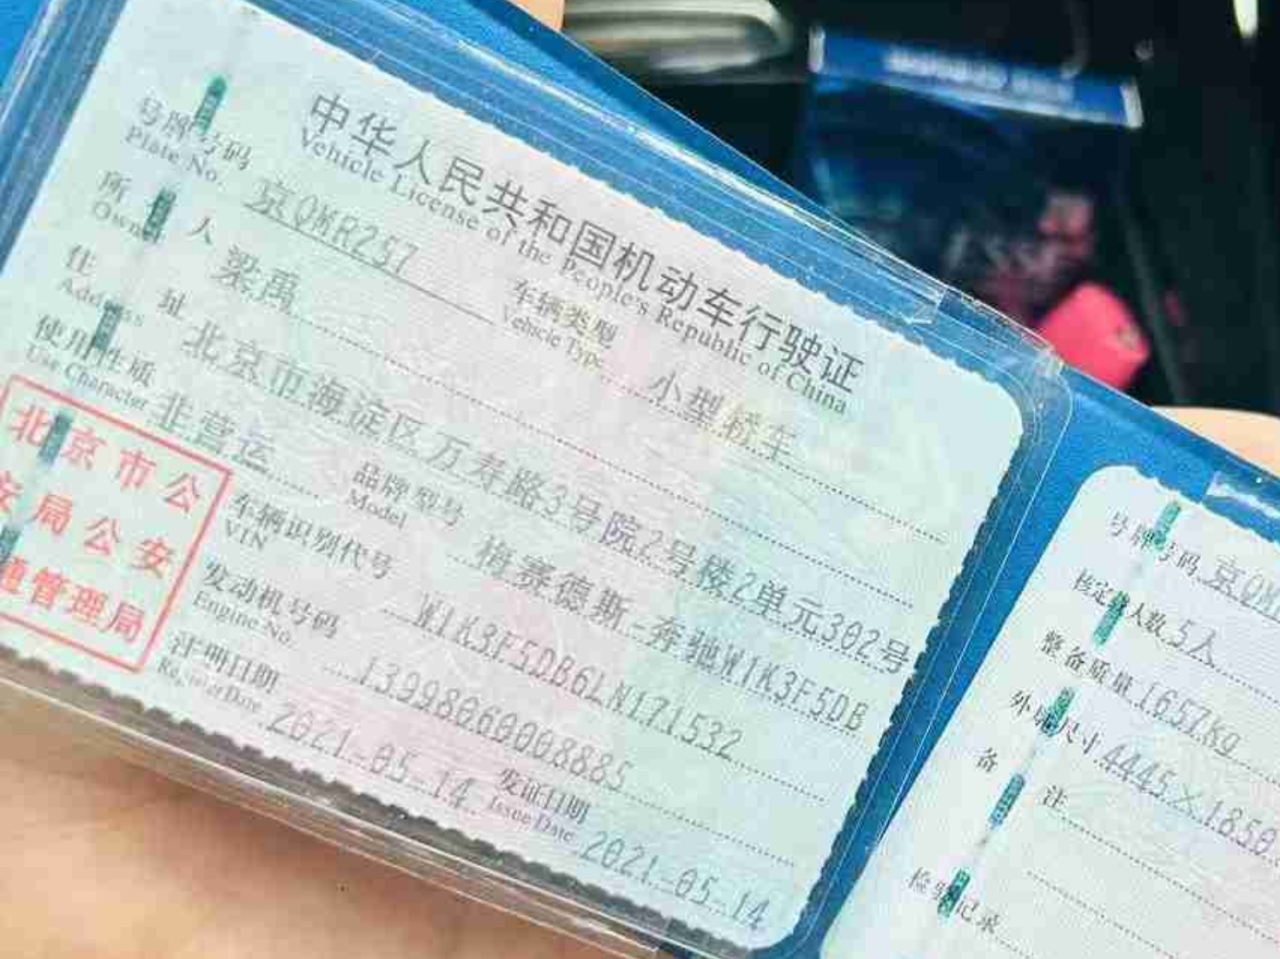 中华人民共和国机动车行驶证
Vehicle License of the People's Republic of China
号牌号码 京QMR257 车辆类型 小型轿车
Plate No. Vehicle Type
所有人 梁禹
Owner
住址 北京市海淀区万寿路3号院2号楼2单元302号
Address
使用性质 非营运 品牌型号 梅赛德斯-奔驰W1K3F5DB
Use Character Model
车辆识别代号 W1K3F5DB6LN171532
VIN
发动机号码 13998060008885
Engine No.
注册日期 2021-05-14 发证日期 2021-05-14
Register Date Issue Date
北京市公
安局公安
通管理局
号牌号码 京QM
核定载人数 5人
整备质量 1657kg
外廓尺寸 4445×1850
备注
检验记录